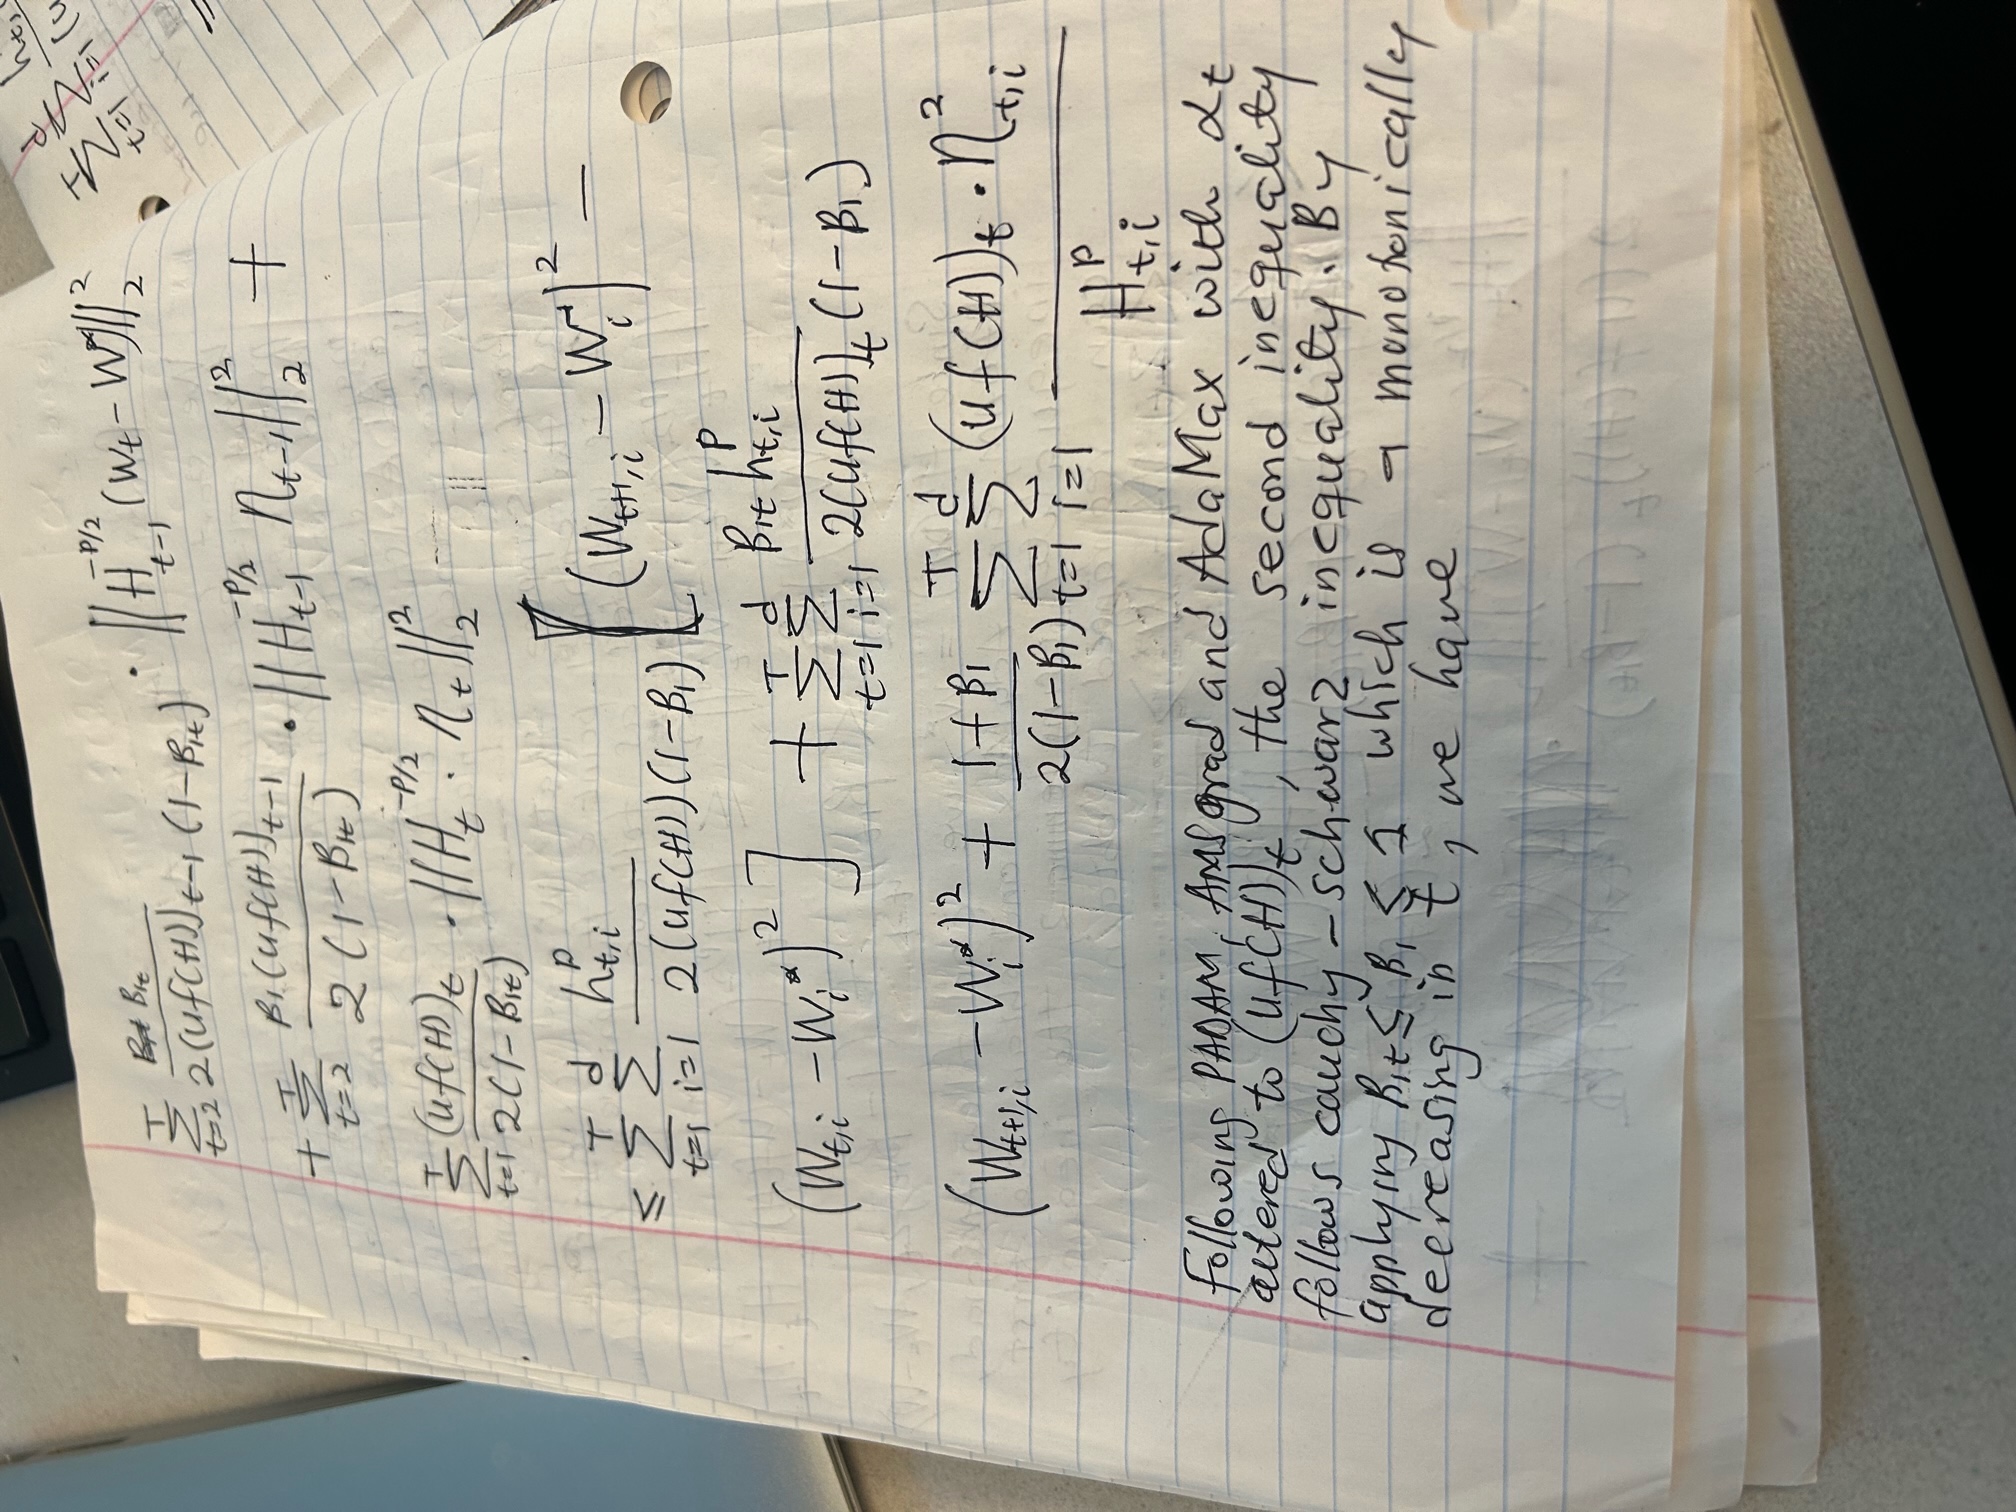 ∑_{t=2}^{T} β_{1t} / 2(Uf(H))_{t-1} (1-β_{1t}) · ||H_{t-1}^{-P/2} (W_t - W^*)||_2^2
+ ∑_{t=2}^{T} β_1 (Uf(H))_{t-1} / 2(1-β_{1t}) · ||H_{t-1}^{-P/2} η_{t-1}||_2^2 +
∑_{t=1}^{T} (Uf(H))_t / 2(1-β_{1t}) · ||H_t^{-P/2} · η_t||_2^2
≤ ∑_{t=1}^{T} ∑_{i=1}^{d} h_{t,i}^p / 2(Uf(H))(1-β_1) [(W_{t+1,i} - W_i^*)^2 -
(W_{t,i} - W_i^*)^2] + ∑_{t=1}^{T} ∑_{i=1}^{d} β_{1t} h_{t,i}^p / 2(Uf(H))_t (1-β_1)
(W_{t+1,i} - W_i^*)^2 + 1+β_1 / 2(1-β_1) ∑_{t=1}^{T} ∑_{i=1}^{d} (Uf(H))_t · η_{t,i}^2 / H_{t,i}^p
Following PADAM, AMSgrad and AdaMax with α_t
altered to (Uf(H))_t, the second inequality
follows cauchy-schwarz inequality. By
applying β_{1t} ≤ β_1 ≤ 1 which is a monotonically
decreasing in t, we have